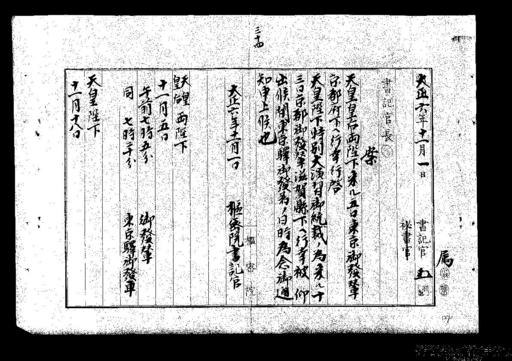 三十四
大正六年十一月一日
書記官
秘書官
属
書記官長
柴
天皇皇后両陛下来ル五日東京御発輦
京都府下ヘ行幸行啓
天皇陛下特別大演習御統裁ノ為来ル十
三日京都御発輦滋賀縣下ヘ行幸被仰
出候間東京驛御発着ノ日時為念御通
知申上候也
大正六年十一月一日
枢密院書記官
天皇皇后両陛下
十一月五日
午前七時五分 御發輦
同 七時二十分 東京驛御發車
天皇陛下
十一月十八日
枢密院